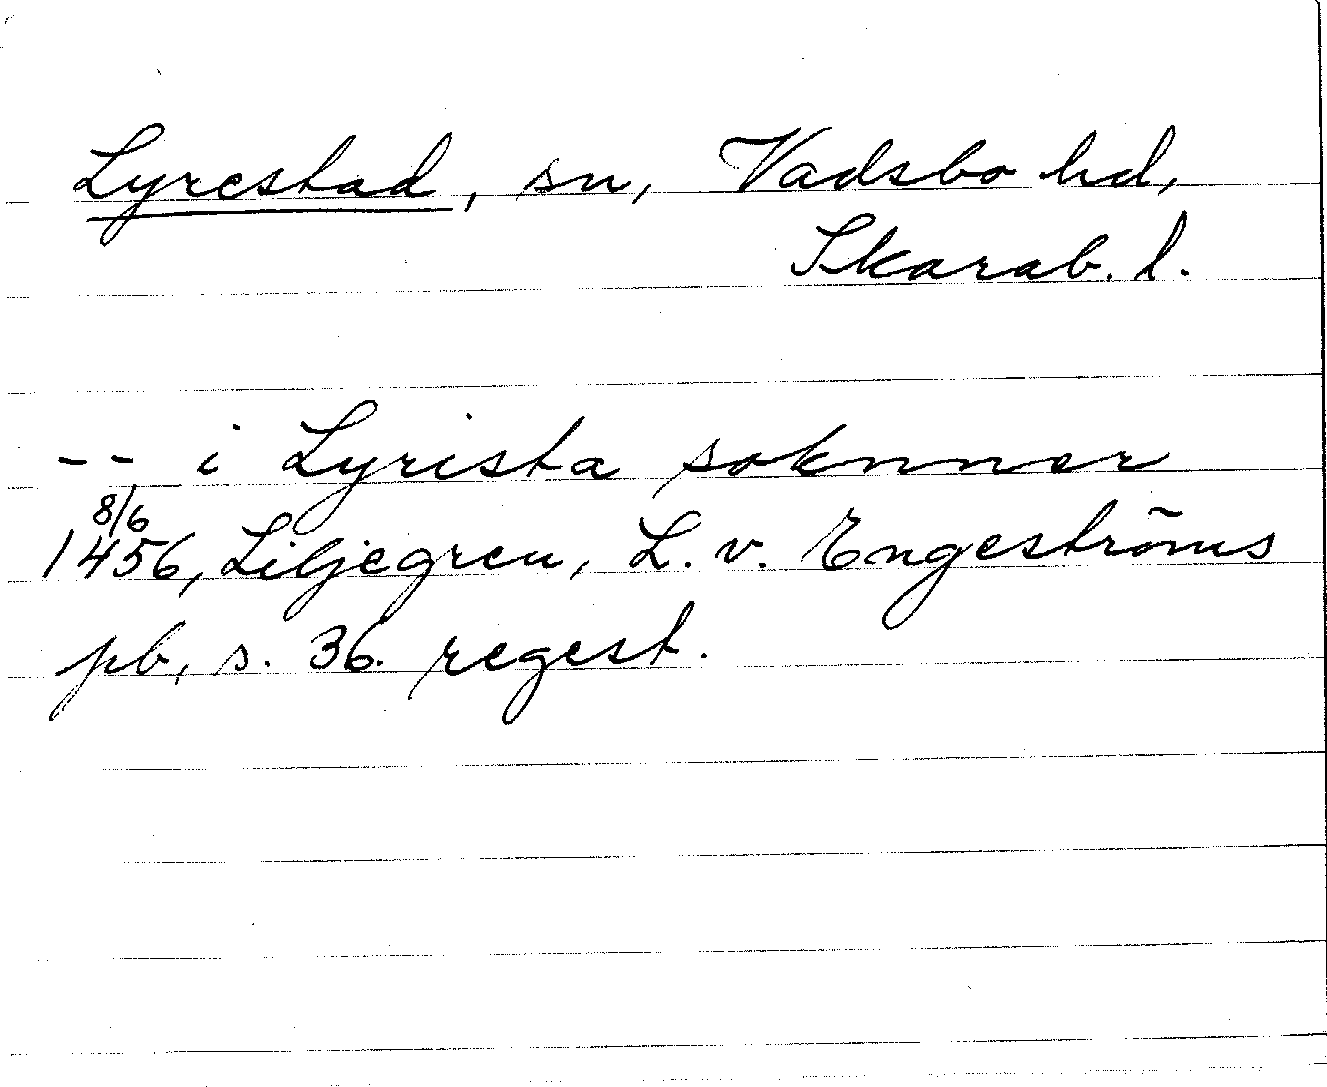 Lyrestad, sn, Vadsbo hd,
Skarab. l.
-- i Lyrista soknner
8/6
1456, Liljegren, L. v. Engeströms
pb, s. 36. regest.